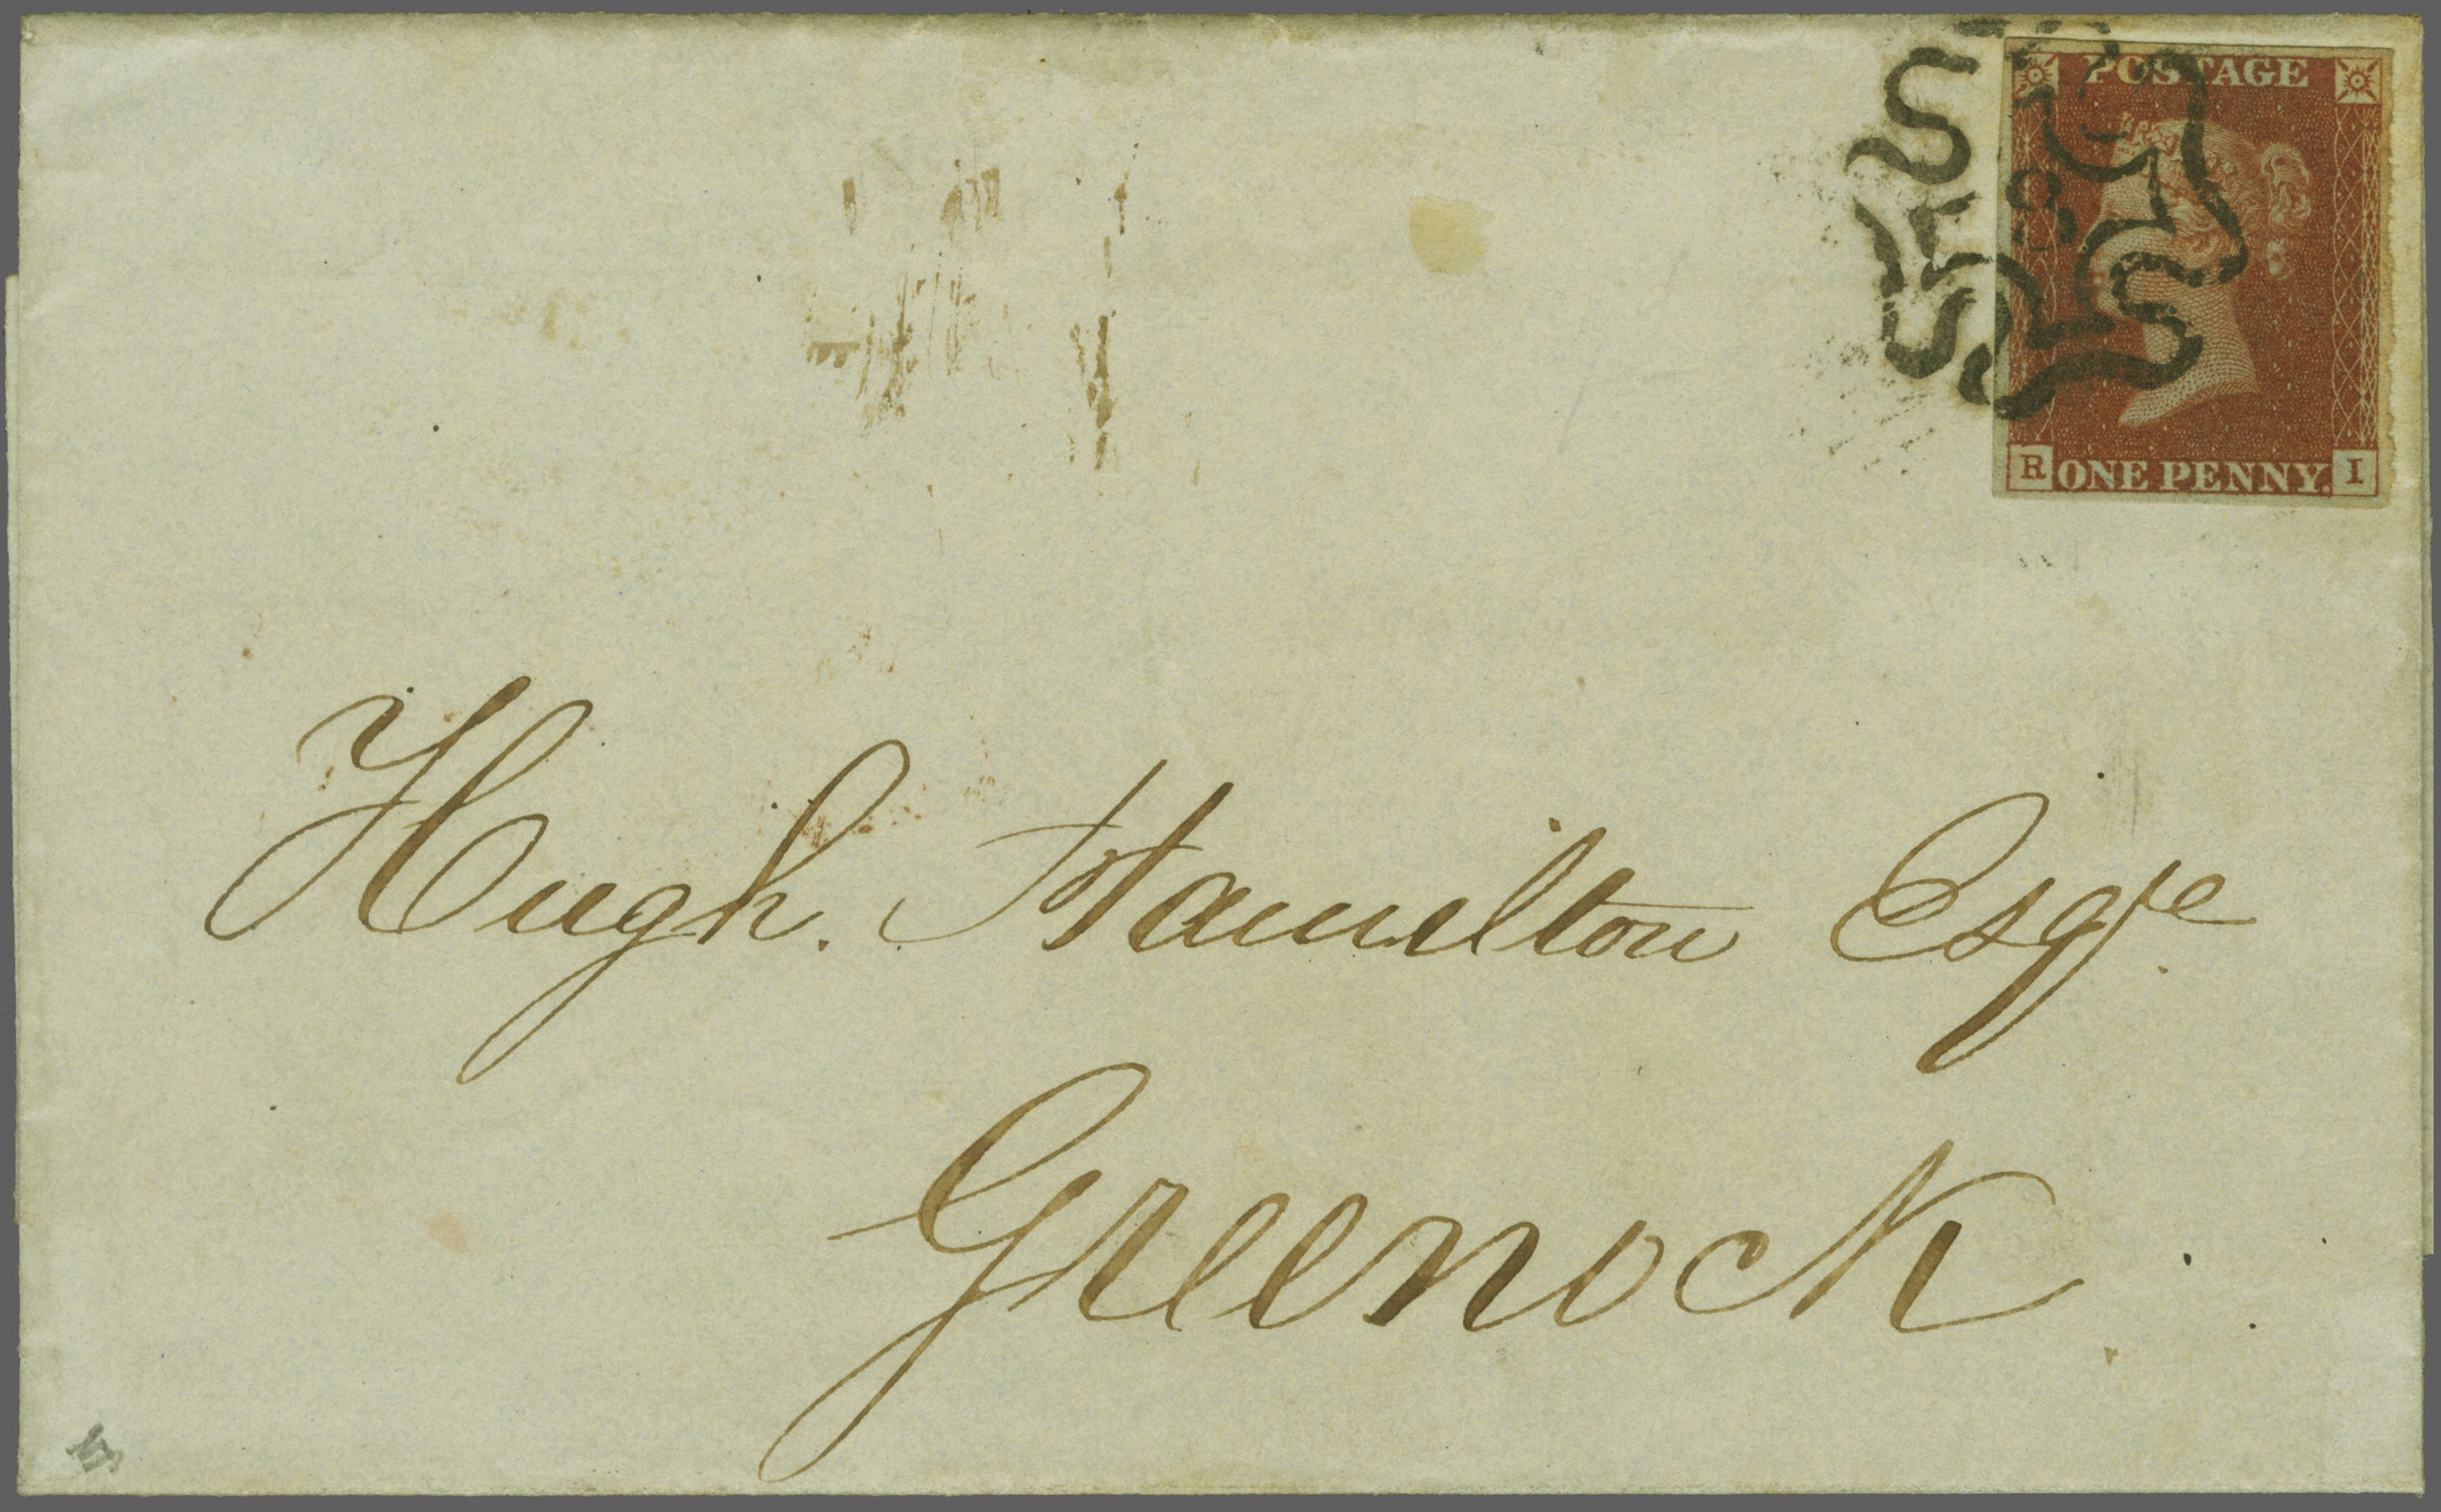 POSTAGE
8
R ONE PENNY. I
Hugh. Hamilton Esqre
Greenock